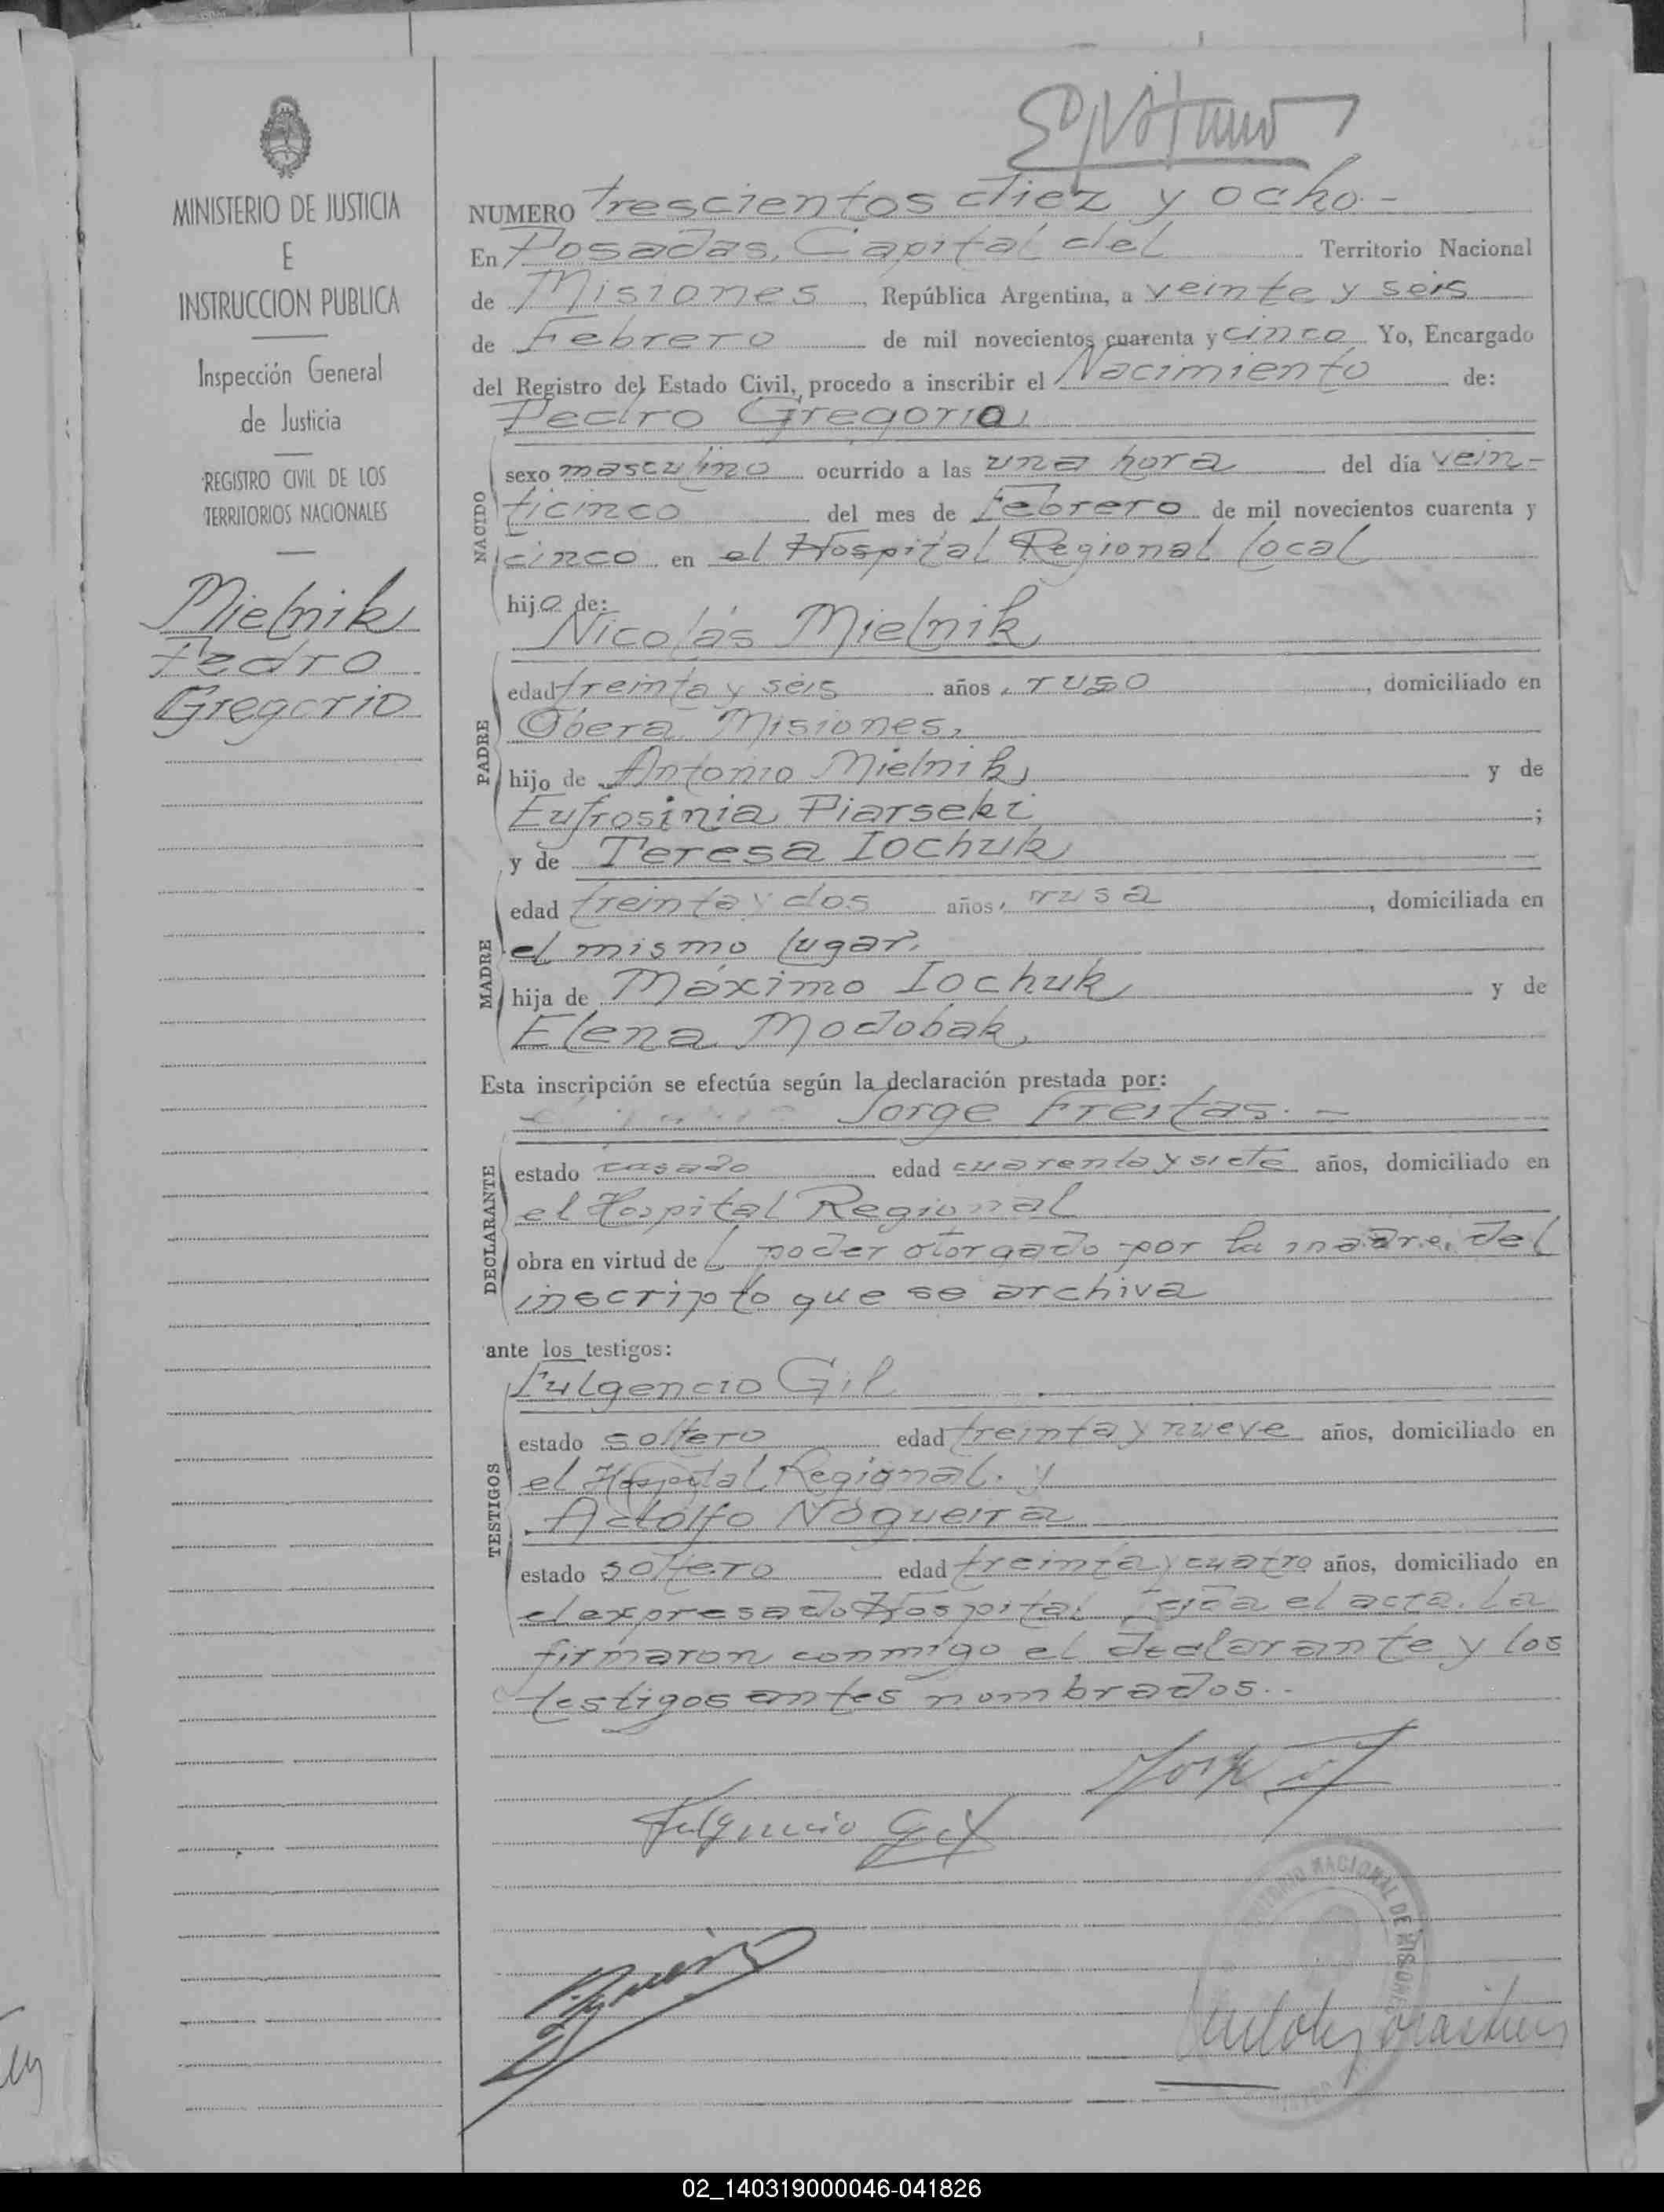 MINISTERIO DE JUSTICIA
E
INSTRUCCION PUBLICA
Inspección General
de Justicia
REGISTRO CIVIL DE LOS
TERRITORIOS NACIONALES
Mielnik
Pedro
Gregorio
NUMERO trescientos diez y ocho.-
En Posadas, Capital del Territorio Nacional
de Misiones, República Argentina, a veinte y seis
de Febrero de mil novecientos cuarenta y cinco Yo, Encargado
del Registro del Estado Civil, procedo a inscribir el Nacimiento de:
Pedro Gregorio
NACIDO
sexo masculino ocurrido a las una hora del día vein-
ticinco del mes de Febrero de mil novecientos cuarenta y
cinco en el Hospital Regional local
hijo de:
Nicolás Mielnik
PADRE
edad treinta y seis años, ruso, domiciliado en
Obera Misiones,
hijo de Antonio Mielnik y de
Eufrosinia Piarseki;
y de Teresa Iochuk
MADRE
edad treinta y dos años, rusa, domiciliada en
el mismo lugar,
hija de Máximo Iochuk y de
Elena Modobak
Esta inscripción se efectúa según la declaración prestada por:
Jorge Freitas.-
DECLARANTE
estado casado edad cuarenta y siete años, domiciliado en
el Hospital Regional
obra en virtud de l poder otorgado por la madre del
inscripto que se archiva
ante los testigos:
Fulgencio Gil
TESTIGOS
estado soltero edad treinta y nueve años, domiciliado en
el Hospital Regional. y
Adolfo Nogueira
estado soltero edad treinta y cuatro años, domiciliado en
el expresado Hospital. Leída el acta. La
firmaron conmigo el declarante y los
testigos antes nombrados.-
Fulgencio Gil
NACIONAL DE MISIONES
02_140319000046-041826